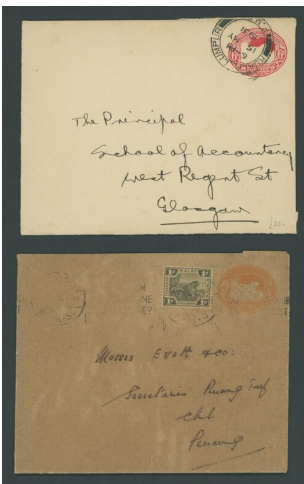 LUMPUR
The Principal
School of Accountancy
West Regent St
Glasgow
Messrs Evatt & Co:
Secretaries Penang Turf
Club
Penang